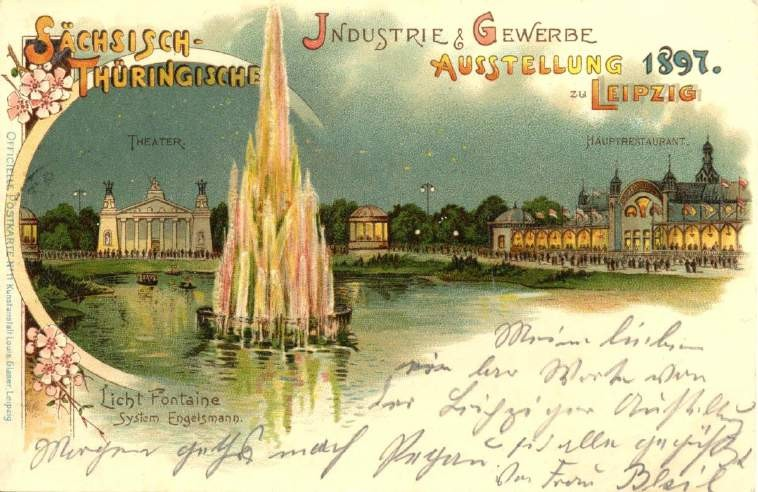 SÄCHSISCH-
THÜRINGISCHE
INDUSTRIE & GEWERBE
AUSSTELLUNG 1897.
ZU LEIPZIG
THEATER.
HAUPTRESTAURANT.
OFFICIELLE POSTKARTE Nº 11 Kunstanstalt Louis Glaser, Leipzig
Licht Fontaine
System Engelsmann.
Meine lieben
Worte von
der Leipziger
Morgen gehts nach Pegau alle
Frau